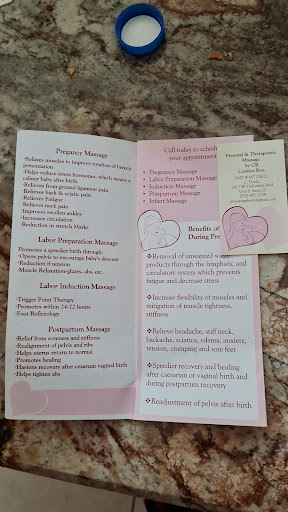 Pregancy Massage
·Relaxes muscles to improve rotation of breech
presentation
·Helps reduce stress hormones, which means a
calmer baby after birth
·Relieves from ground ligament pain
·Relieves back & sciatic pain
·Relieves Fatigue
·Relieves neck pain
·Improves swollen ankles
·Increases circulation
·Reduction in stretch Marks
Labor Preparation Massage
Promotes a speedier birth through:
·Opens pelvis to encourage baby's descent
·Reduction if tension
·Muscle Relaxation-glutes, abs, etc.
Labor Induction Massage
·Trigger Point Therapy
·Promotes within 24-72 hours
·Foot Reflexology
Postpartum Massage
·Relief from soreness and stiffness
·Realignment of pelvis and ribs
·Helps uterus return to normal
·Promotes healing
·Hastens recovery after cesarean vaginal birth
·Helps tighten abs
Call today to schedu
your appointment
• Pregnancy Massage
• Labor Preparation Massage
• Induction Massage
• Postpartum Massage
• Infant Massage
Benefits of
During Pre
❖Removal of unwanted waste
products through the lymphatic and
circulatory system which prevents
fatigue and decrease stress
❖Increase flexibility of muscles and
mitigation of muscle tightness,
stiffness
❖Relieve headache, stiff neck,
backache, sciatica, edema, anxiety,
tension, cramping and sore feet
❖Speedier recovery and healing
after caesarian or vaginal birth and
during postpartum recovery
❖Readjustment of pelvis after birth
Prenatal & Therapeutic
Massage
by CR
Carolina Rico